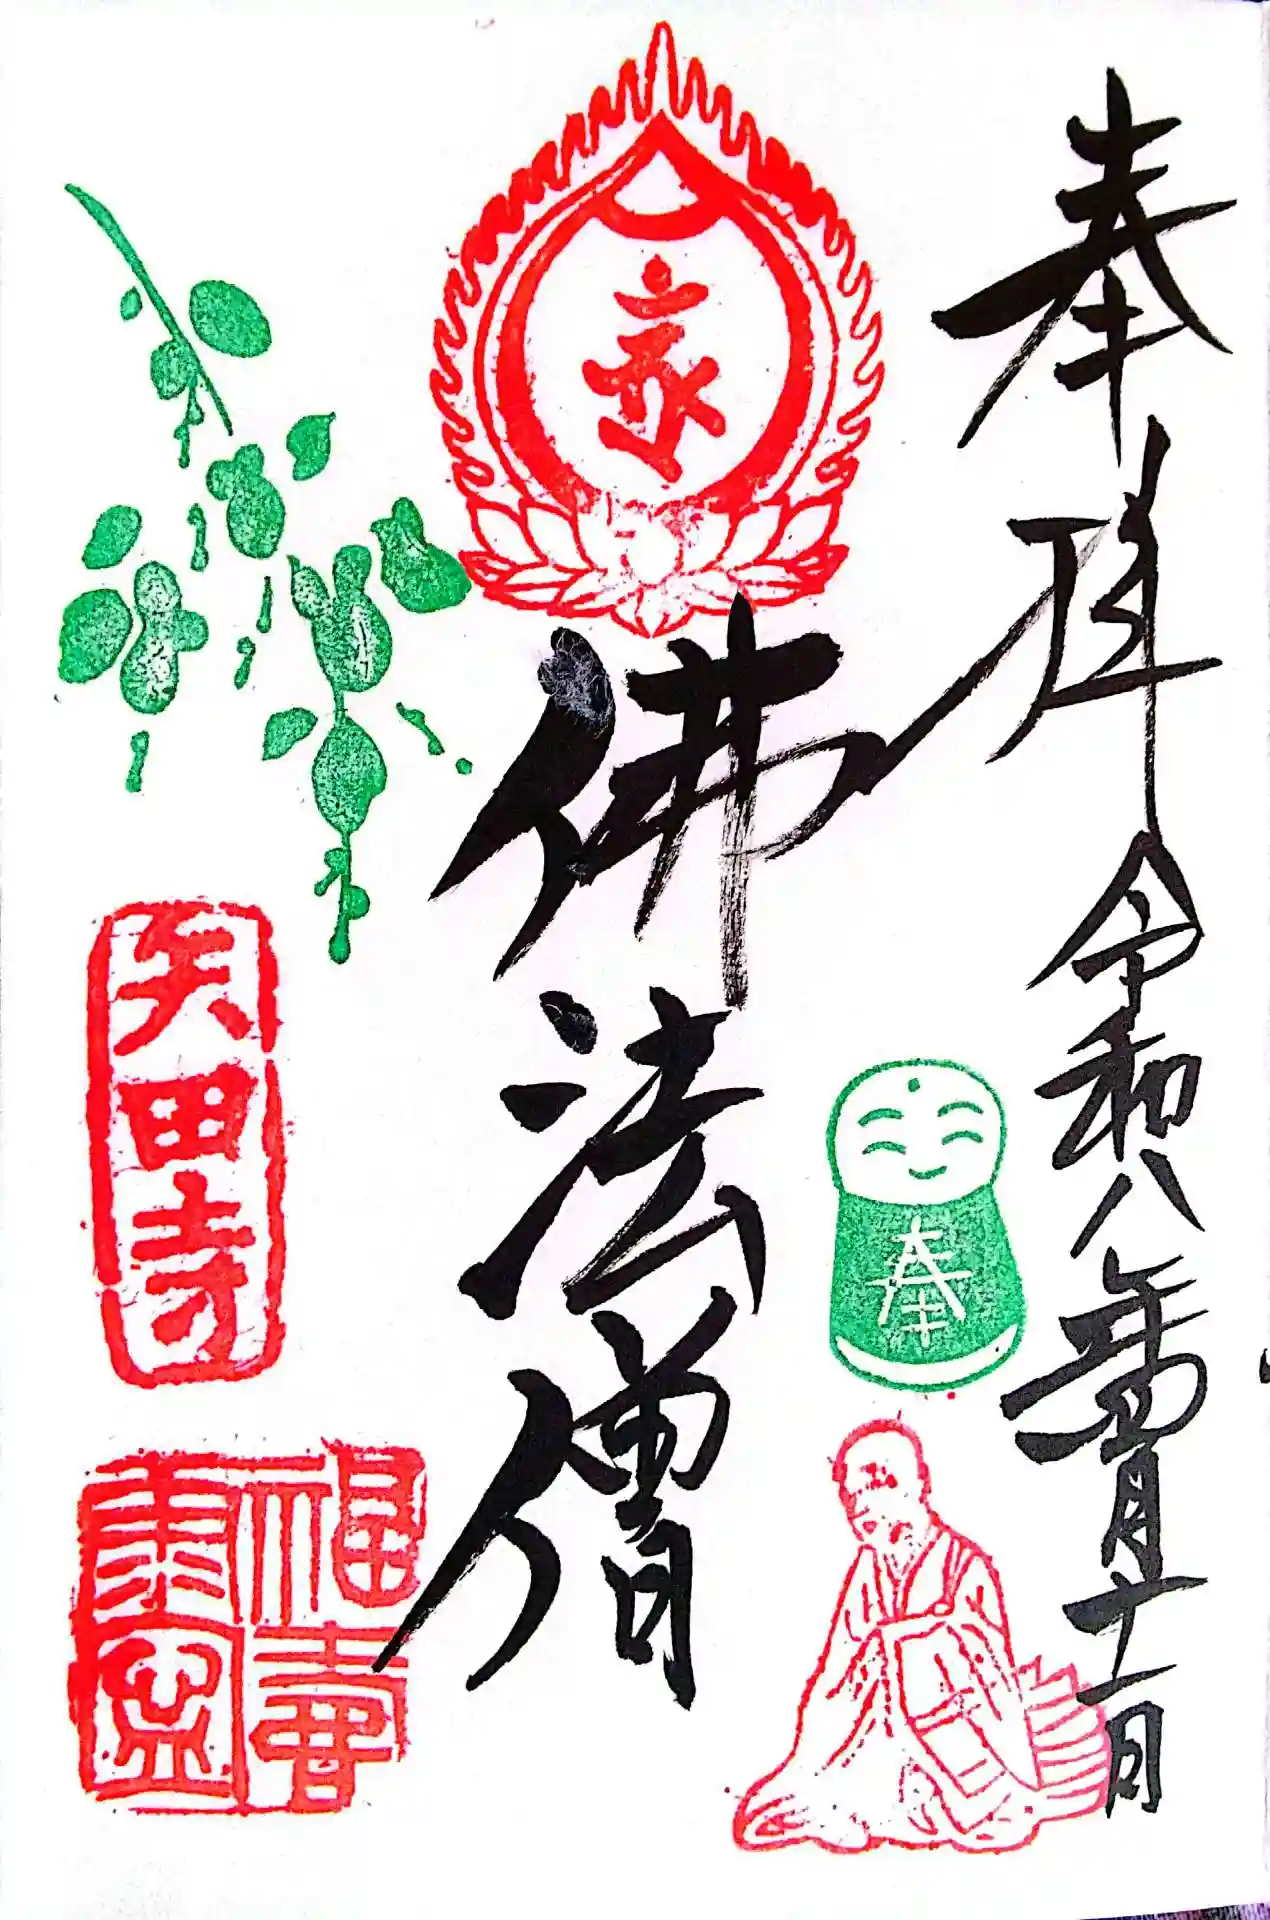 奉拝 令和八年 月十一日
奉
佛法僧
矢田寺
福壽康寧